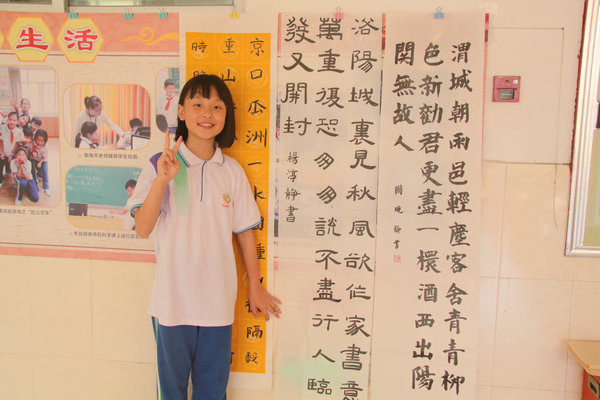 生活
渭城朝雨邑輕塵客舍青青柳
色新勸君更盡一杯酒西出陽
關無故人
洛陽城裏見秋風欲作家書意
萬重復恐匆匆說不盡行人臨
發又開封
楊淳靜書
京口瓜洲一水間鍾隔數
重山
時